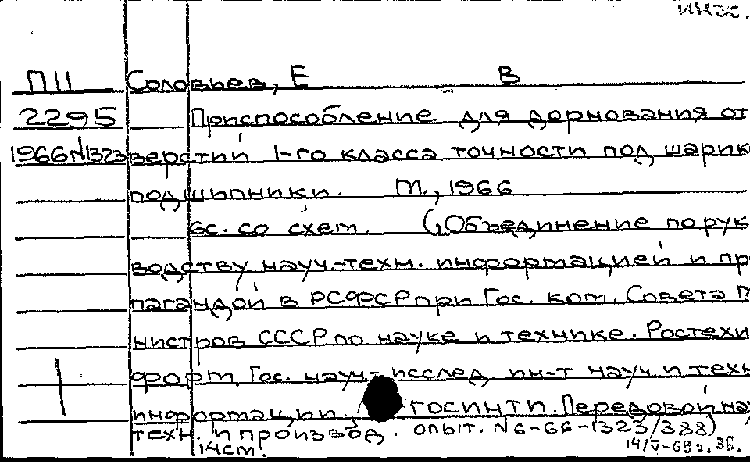 П11 Соловьев, Е В
2295 Приспособление для дорнования от
1966 N1323 верстий 1-го класса точности под шарик
подшипники. М., 1966
6с. со схем. (Объединение по рук
водству науч.-техн. информацией и пр
пагандой в РСФСР при Гос. ком. Совета М
нистров СССР по науке и технике. Ростехи
форм, Гос. науч.-исслед. ин-т науч. и техн
информации. ГОСИНТИ. Передовой на
техн. и производ. опыт. N6-66-1323/388)
14см. 14/V-68г.